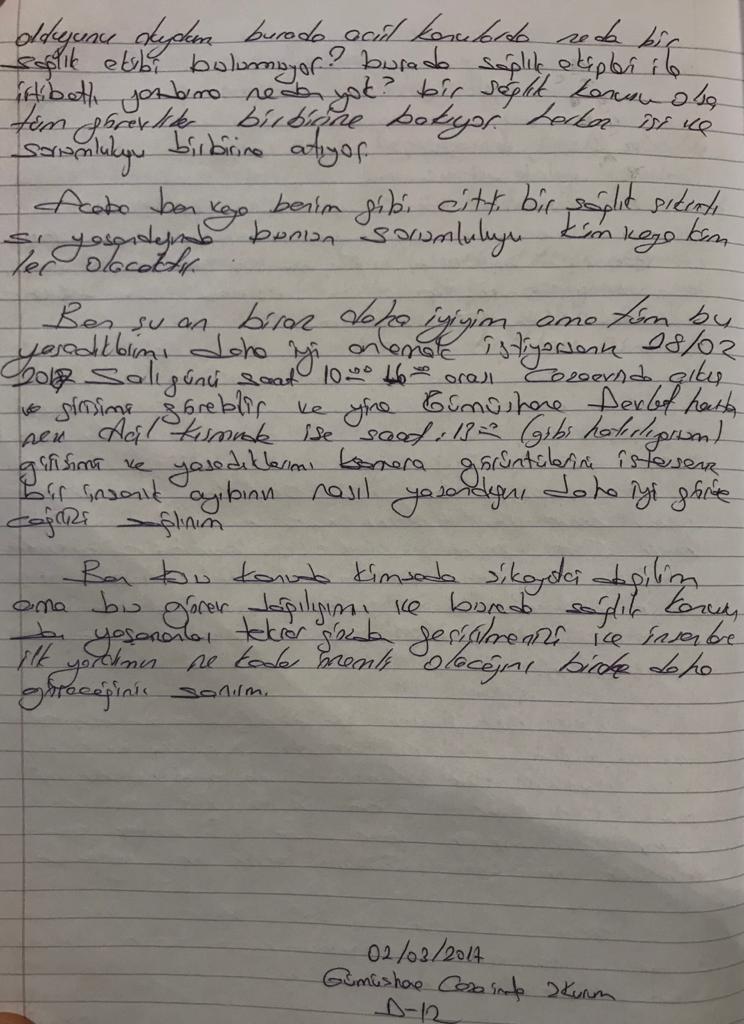 olduğunu duydum burada acil konularda neden bir
sağlık ekibi bulunmuyor? burada sağlık ekipleri ile
irtibatlı yardım neden yok? bir sağlık konusu olsa
tüm görevliler birbirine bakıyor. herkes işi ve
sorumluluğu birbirine atıyor.
Acaba ben veya benim gibi, ciddi bir sağlık sıkıntı
sı yaşandığında bunun sorumluluğu kim veya kim
ler olacaktır.
Ben şu an biraz daha iyiyim ama tüm bu
yaşadıklarımı daha iyi anlamak istiyorsanız 28/02
2017 Salı günü saat 10:00 16:00 arası Cezaevinde çıkış
ve girişimi görebilir ve yine Gümüşhane Devlet hasta
nesi Acil kısmında ise saat: 13:00 (gibi hatırlıyorum)
girişimi ve yaşadıklarımı kamera görüntülerini isterseniz
bir insanlık ayıbının nasıl yaşandığını daha iyi göre
ceğiniz sanırım
Ben bu konuda kimseden şikayetçi değilim
ama bu görev dağılımı ve burada sağlık konusun
da yaşananları tekrar gözden geçirilmenizi ve insanlara
ilk yardımın ne kadar önemli olacağını birde daha
göreceğiniz sanırım.
02/03/2017
Gümüşhane Cezaevinde
D-12